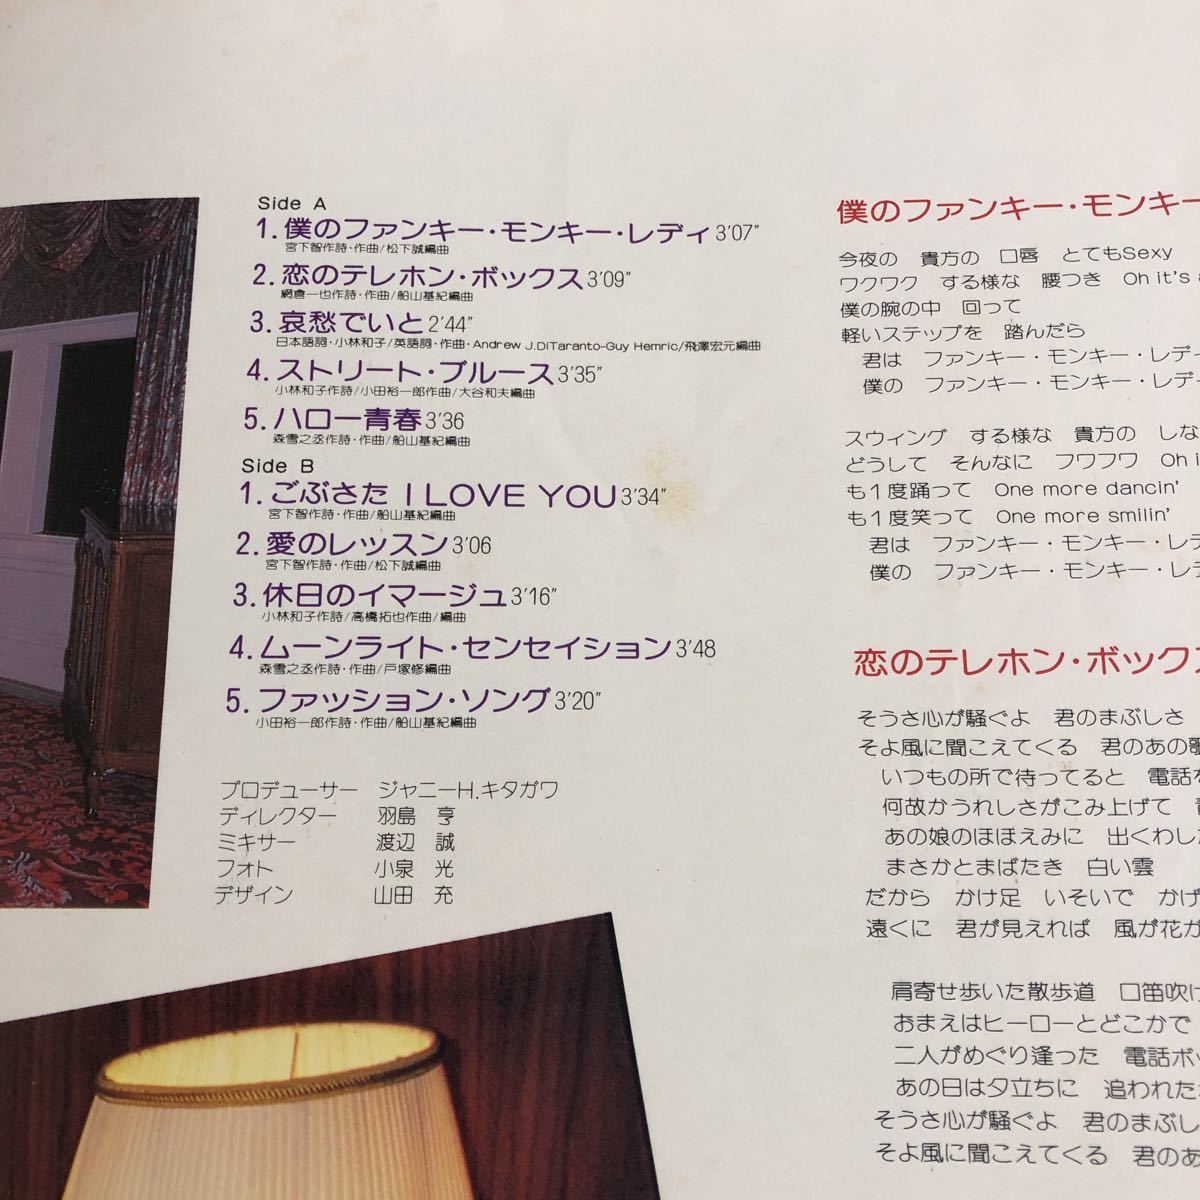 Side A
1. 僕のファンキー・モンキー・レディ 3'07"
宮下智作詩・作曲/松下誠編曲
2. 恋のテレホン・ボックス 3'09"
網倉一也作詩・作曲/船山基紀編曲
3. 哀愁でいと 2'44"
日本語詞・小林和子/英語詞・作曲・Andrew J.DiTaranto-Guy Hemric/飛澤宏元編曲
4. ストリート・ブルース 3'35"
小林和子作詩/小田裕一郎作曲/大谷和夫編曲
5. ハロー青春 3'36
森雪之丞作詩・作曲/船山基紀編曲
Side B
1. ごぶさた I LOVE YOU 3'34"
宮下智作詩・作曲/船山基紀編曲
2. 愛のレッスン 3'06
宮下智作詩・作曲/松下誠編曲
3. 休日のイマージュ 3'16"
小林和子作詩/高橋拓也作曲/編曲
4. ムーンライト・センセイション 3'48
森雪之丞作詩・作曲/戸塚修編曲
5. ファッション・ソング 3'20"
小田裕一郎作詩・作曲/船山基紀編曲
プロデューサー ジャニーH.キタガワ
ディレクター 羽島 亨
ミキサー 渡辺 誠
フォト 小泉 光
デザイン 山田 充
僕のファンキー・モンキー
今夜の 貴方の 口唇 とてもSexy
ワクワク する様な 腰つき Oh it's
僕の腕の中 回って
軽いステップを 踏んだら
君は ファンキー・モンキー・レディ
僕の ファンキー・モンキー・レデ
スウィング する様な 貴方の しな
どうして そんなに フワフワ Oh i
も1度踊って One more dancin'
も1度笑って One more smilin'
君は ファンキー・モンキー・レデ
僕の ファンキー・モンキー・レデ
恋のテレホン・ボックス
そうさ心が騒ぐよ 君のまぶしさ
そよ風に聞こえてくる 君のあの歌
いつもの所で待ってると 電話を
何故かうれしさがこみ上げて
あの娘のほほえみに 出くわした
まさかとまばたき 白い雲
だから かけ足 いそいで かげ
遠くに 君が見えれば 風が花が
肩寄せ歩いた散歩道 口笛吹け
おまえはヒーローとどこかで
二人がめぐり逢った 電話ボッ
あの日は夕立ちに 追われた
そうさ心が騒ぐよ 君のまぶし
そよ風に聞こえてくる 君のあ